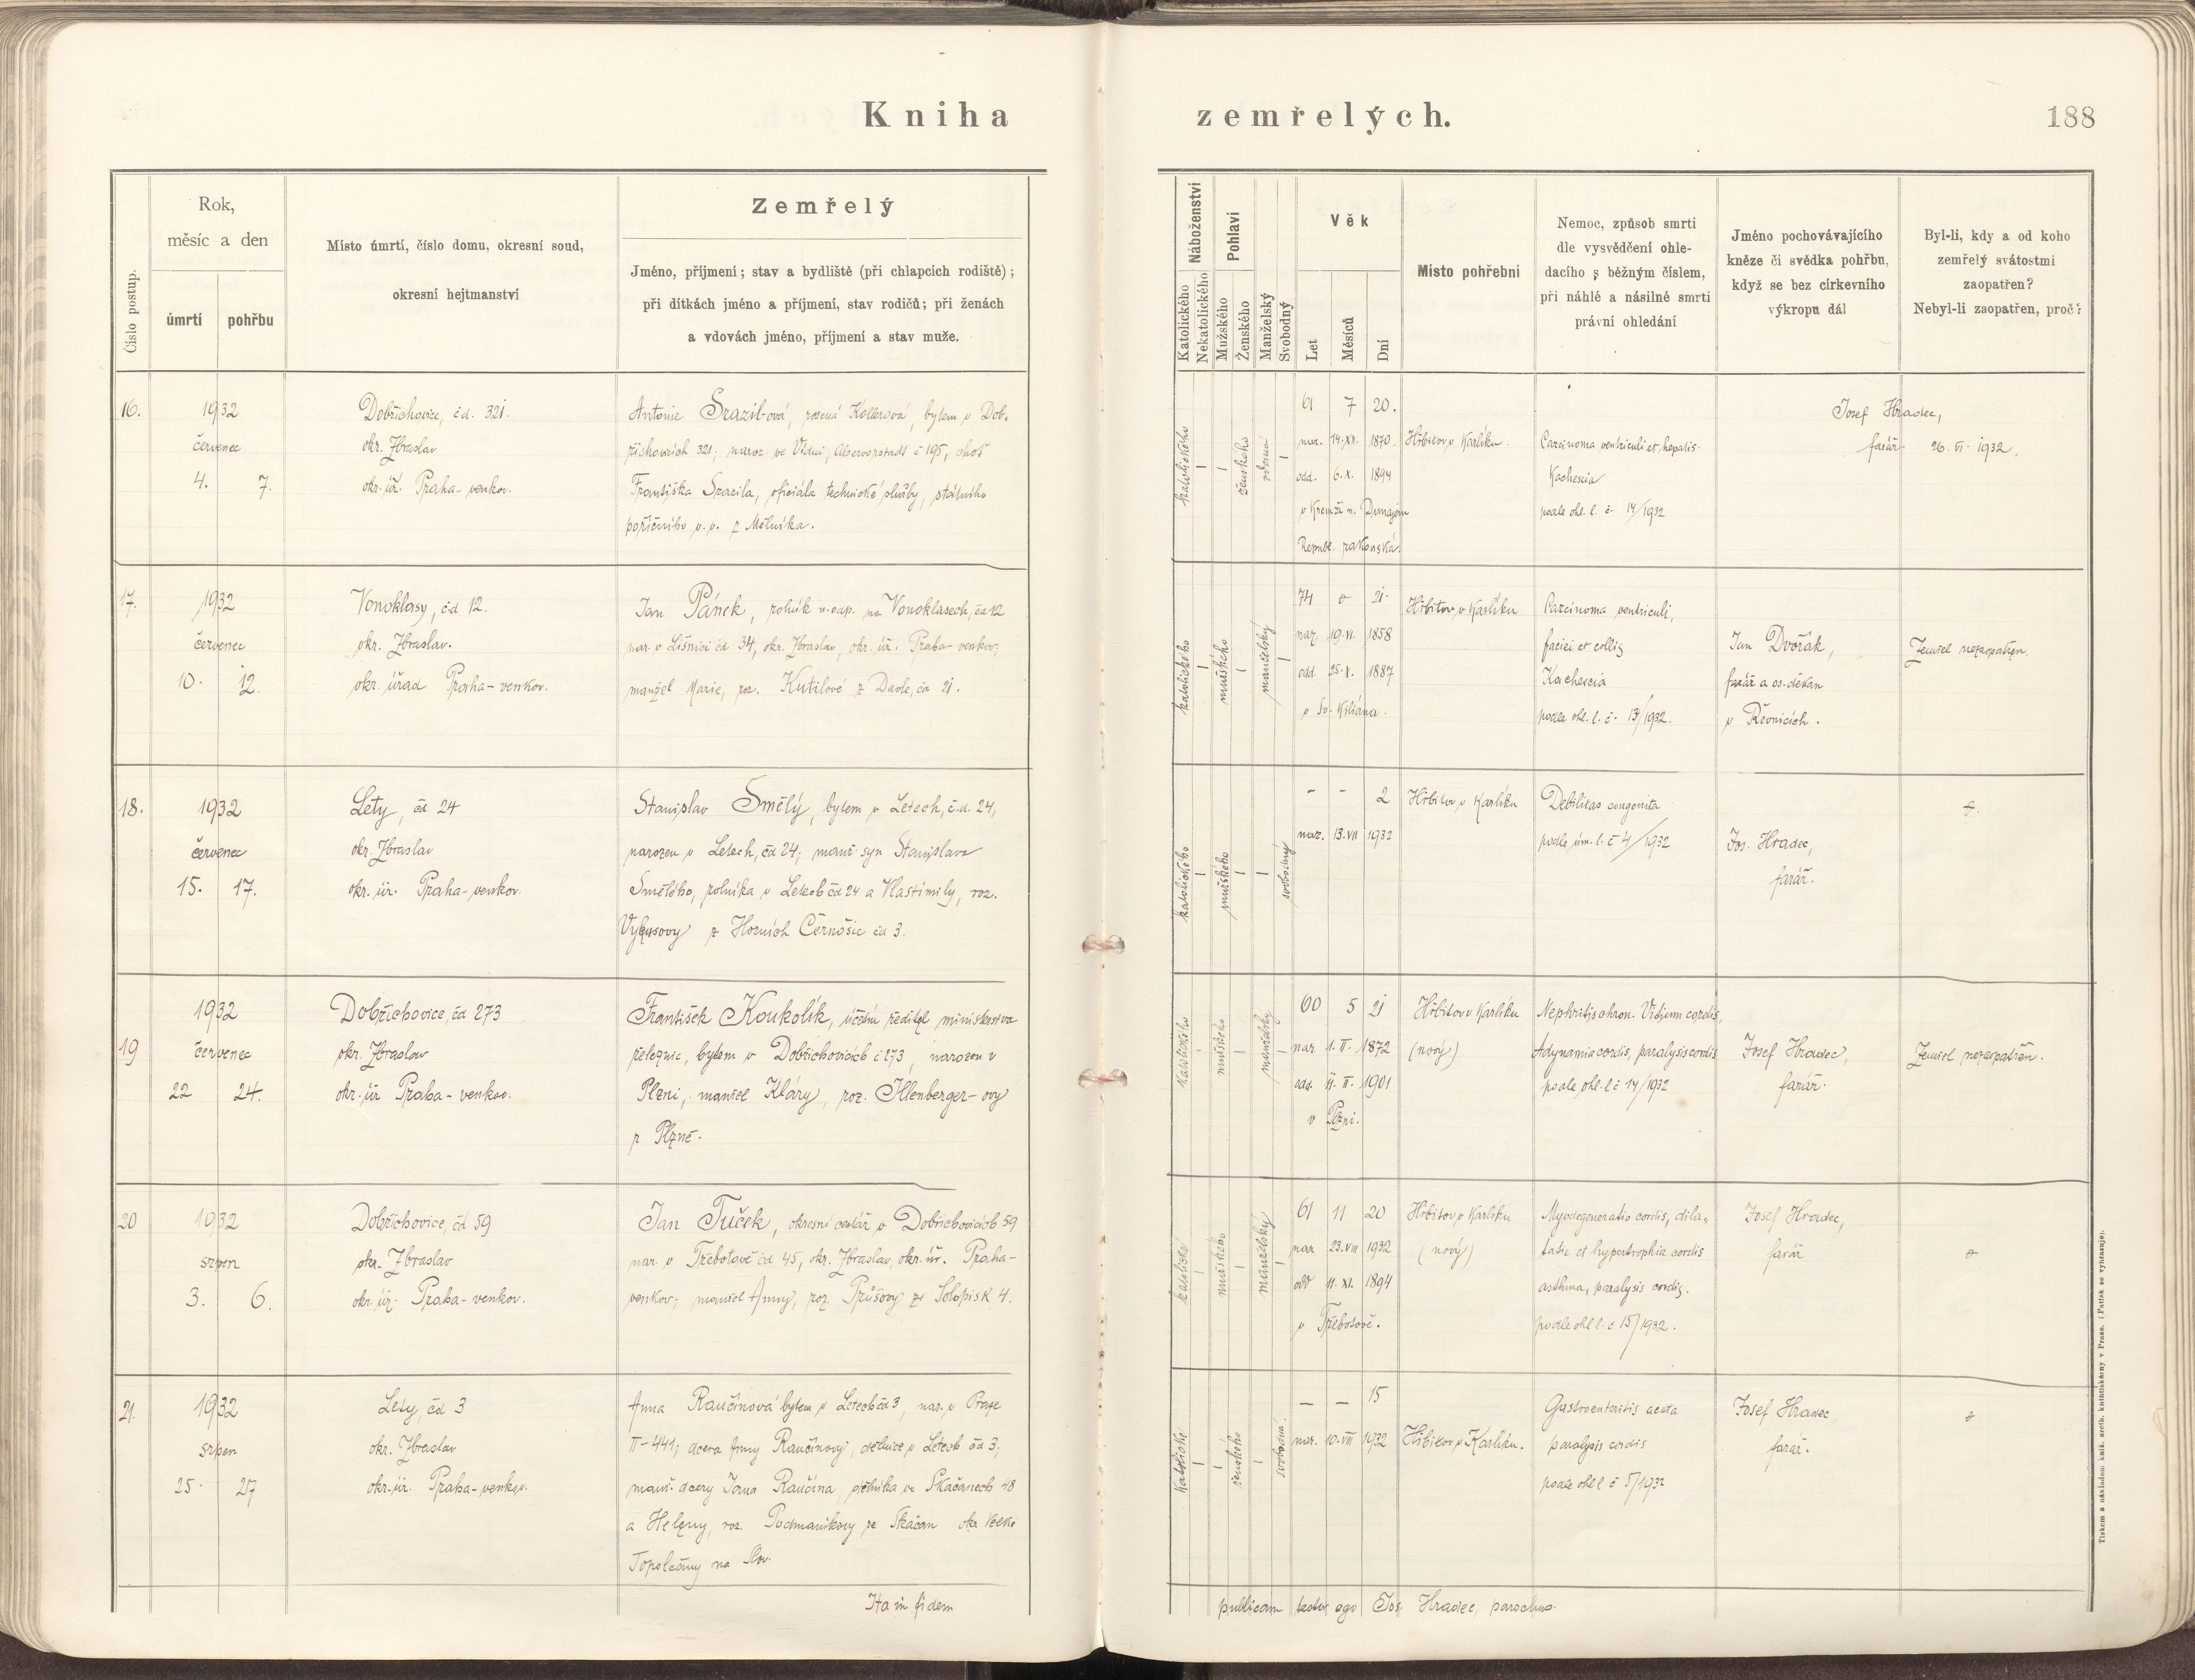 Kniha zemřelých.
188
Číslo postup.
Rok,
měsíc a den
úmrtí
pohřbu
Místo úmrtí, číslo domu, okresní soud,
okresní hejtmanství
Zemřelý
Jméno, příjmení; stav a bydliště (při chlapcích rodiště);
při dítkách jméno a příjmení, stav rodičů; při ženách
a vdovách jméno, příjmení a stav muže.
Náboženství
Katolického
Nekatolického
Pohlaví
Mužského
Ženského
Manželský
Svobodný
Věk
Let
Měsíců
Dní
Místo pohřební
Nemoc, způsob smrti
dle vysvědčení ohle-
dacího s běžným číslem,
při náhlé a násilné smrti
právní ohledání
Jméno pochovávajícího
kněze či svědka pohřbu,
když se bez církevního
výkropu dál
Byl-li, kdy a od koho
zemřelý svátostmi
zaopatřen?
Nebyl-li zaopatřen, proč?
16.
1932
červenec
4. 7.
Dobřichovice, č.d. 321.
okr. Zbraslav
okr. úř. Praha-venkov.
Antonie Srazil-ová, rozená Kollerová, bytem v Dob-
řichovicích 321; naroz. ve Vídni, Alservorstadt č 195, choť
Františka Srazila, oficiála technické služby, státního
poříčního v.v. z Mělníka.
katolického
ženského
61 7 20.
nar. 14.XI. 1870.
odd. 6.X. 1894
v Kremži n. Dunajem
Republ. rakouská.
Hřbitov v Karlíku.
Carcinoma ventriculi et hepatis.
Kachexia
podle ohl. l. č. 14/1932
Josef Hradec,
farář.
26. VI. 1932.
17.
1932
červenec
10. 12.
Vonoklasy, č.d 12.
okr. Zbraslav.
okr. úřad Praha-venkov.
Jan Pánek, rolník n. odp. na Vonoklasech, čd 12
nar. v Líšnici čd 34, okr. Zbraslav, okr. úř. Praha-venkov;
manžel Marie, roz. Kutilové z Davle, čd 21.
katolického
mužského
manželský
74 0 21.
nar. 19.VI. 1858
odd. 25.X. 1887
v Sv. Kiliána.
Hřbitov v Karlíku
Carcinoma ventriculi,
faciei et colli;
Kachexia
podle ohl. l. č. 13/1932.
Jan Dvořák,
farář a os. děkan
v Řevnicích.
Zemřel nezaopatřen.
18.
1932
červenec
15. 17.
Lety, čd 24
okr. Zbraslav
okr. úř. Praha-venkov.
Stanislav Smělý, bytem v Letech, č.d. 24,
narozen v Letech, čd 24; manž. syn Stanislava
Smělého, rolníka v Letech čd 24 a Vlastimily, roz.
z Horních Černošic čd 3.
katolického
mužského
svobodný
- - 2
nar. 13.VII 1932
Hřbitov v Karlíku
Debilitas congenita
podle úm. l. č 4/1932
Jos. Hradec,
farář.
19
1932
červenec
22 24.
Dobřichovice, čd 273
okr. Zbraslav
okr. úř Praha-venkov.
František Koukolík, účetní ředitel ministerstva
železnic, bytem v Dobřichovicích č 273, narozen v
Plzni, manžel Kláry, roz. Illenberger-ovy
z Plzně.
katolického
mužského
manželský
60 5 21
nar 1.II. 1872
odd. 11.II. 1901
v Plzni.
Hřbitov v Karlíku
(nový)
Nephritis chron. Vitium cordis,
Adynamia cordis, paralysis cordis
podle ohl. l č 14/1932
Josef Hradec,
farář.
Zemřel nezaopatřen.
20
1932
srpen
3. 6.
Dobřichovice, čd 59
okr. Zbraslav
okr. úř. Praha-venkov.
Jan Tuček, okresní cestář v Dobřichovicích 59
nar. v Třebotově čd 45, okr. Zbraslav, okr. úř. Praha-
venkov; manžel Anny, roz. Průšovy ze Solopisk 4.
mužského
manželský
61 11 20
nar 23.VIII 1932
odd 11.XI. 1894
v Třebotově.
Hřbitov v Karlíku
(nový)
Myodegeneratio cordis, dila-
tatio et hypertrophia cordis
asthma, paralysis cordis.
podle ohl l. č 15/1932.
Josef Hradec,
farář
21.
1932
srpen
25. 27
Lety, čd 3
okr. Zbraslav
okr. úř. Praha-venkov.
Anna Raučinová bytem v Letech čd 3, nar. v Praze
II-441; dcera Anny Raučinovy, dělnice v Letech čd 3;
manž. dcery Jana Raučina, dělníka ve Skačanech 48
a Heleny, roz. Podmanikovy ze Skačan okr Velké
Topolčany na Slov.
ženského
svobodná.
- - 15
nar. 10.VIII 1932
Hřbitov v Karlíku.
Gastroenteritis acuta
paralysis cordis
podle ohl l č 5/1932
Josef Hradec,
farář.
Ita in fidem publicam testor ego Jos. Hradec, parochus.
Tiskem a nákladem kníž. arcib. knihtiskárny v Praze. (Patisk se vyhrazuje)